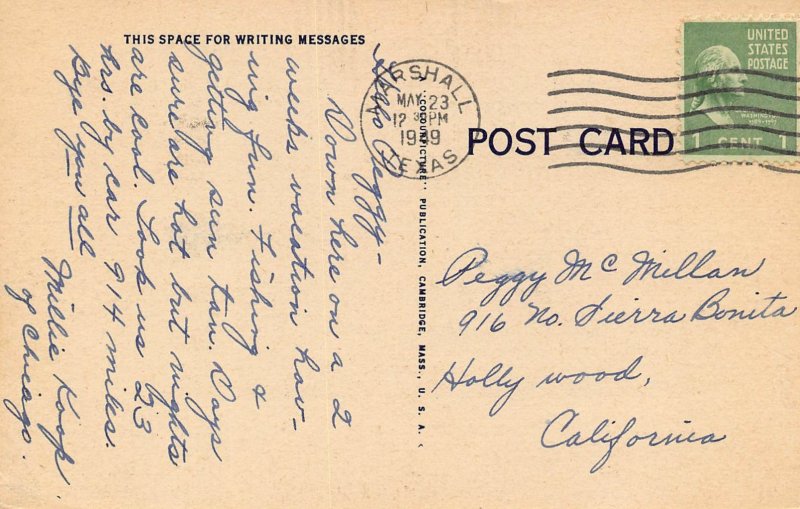 THIS SPACE FOR WRITING MESSAGES
Hello Peggy-
Down here on a 2
weeks vacation hav-
ing fun. Fishing &
getting sun tan. Days
sure are hot but nights
are cool. Took us 23
hrs. by car 914 miles.
Bye you all
Millie Koop
of Chicago.
"COLOURPICTURE" PUBLICATION, CAMBRIDGE, MASS., U. S. A.
MARSHALL
MAY 23
12 30 PM
TEXAS
UNITED
STATES
POSTAGE
WASHINGTON
1 CENT 1
POST CARD
Peggy McMillan
916 No. Sierra Bonita
Hollywood,
California